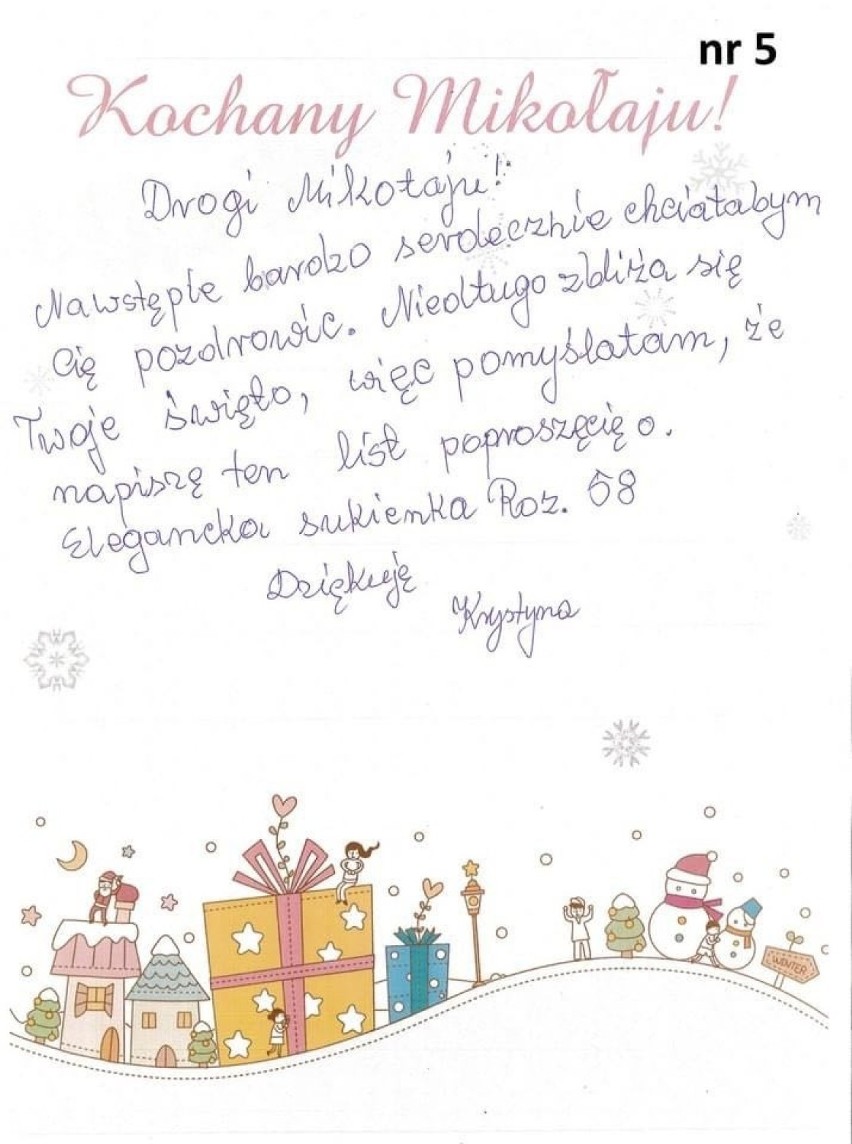 nr 5
Kochany Mikołaju!
Drogi Mikołaju!
Nawstępie bardzo serdecznie chciałabym
Cię pozdrowic. Niedługo zbliża się
Twoje święto, więc pomyślałam, że
napiszę ten list poproszęcię o.
Elegancka sukienka Roz. 58
Dziękuję
Krystyna
WINTER